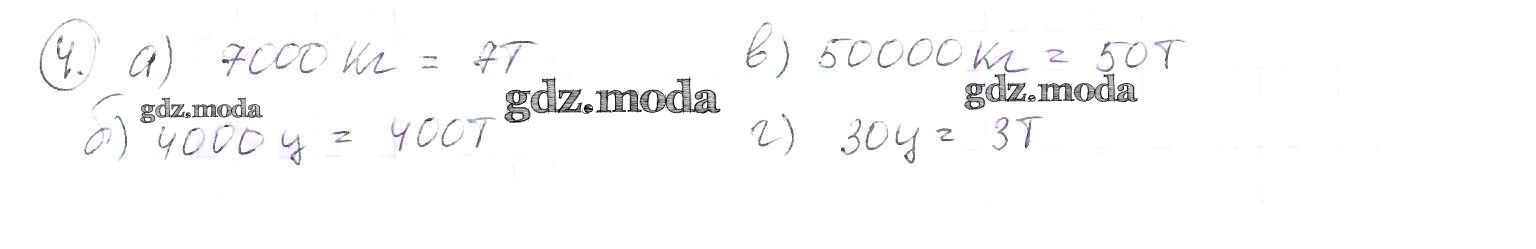 4. а) 7000 кг = 7т в) 50000 кг = 50т
gdz.moda gdz.moda gdz.moda
б) 4000 ц = 400т г) 30ц = 3т